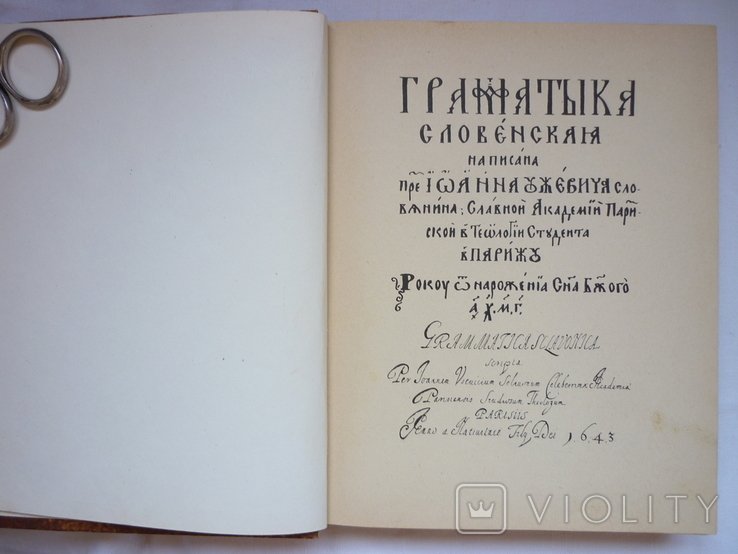 ГРАММАТЫКА
СЛОВЕ́НСКАꙖ
НАПИСА́НА
Пре͂ЗЪ ІѠА́ННА ꙊЖЕ́ВИЧА Сло-
вѧни́на, Сла́вной Академі́й Пари́-
ской в Теѡло́гіи Студента
в ПАРИ́ЖꙊ
Рокоу ѿ нароже́нїѧ Сн҃а Бж҃ого
҂а҃.х҃.м҃.г҃.
GRAMMATICA SCLAVONICA
scripta
Per Joannem Usevicium Sclavum Celeberrimæ Academiæ
Parisiensis Studiosum Theologum
PARISIIS
Anno a Nativitate Filij Dei 1643
VIOLITY